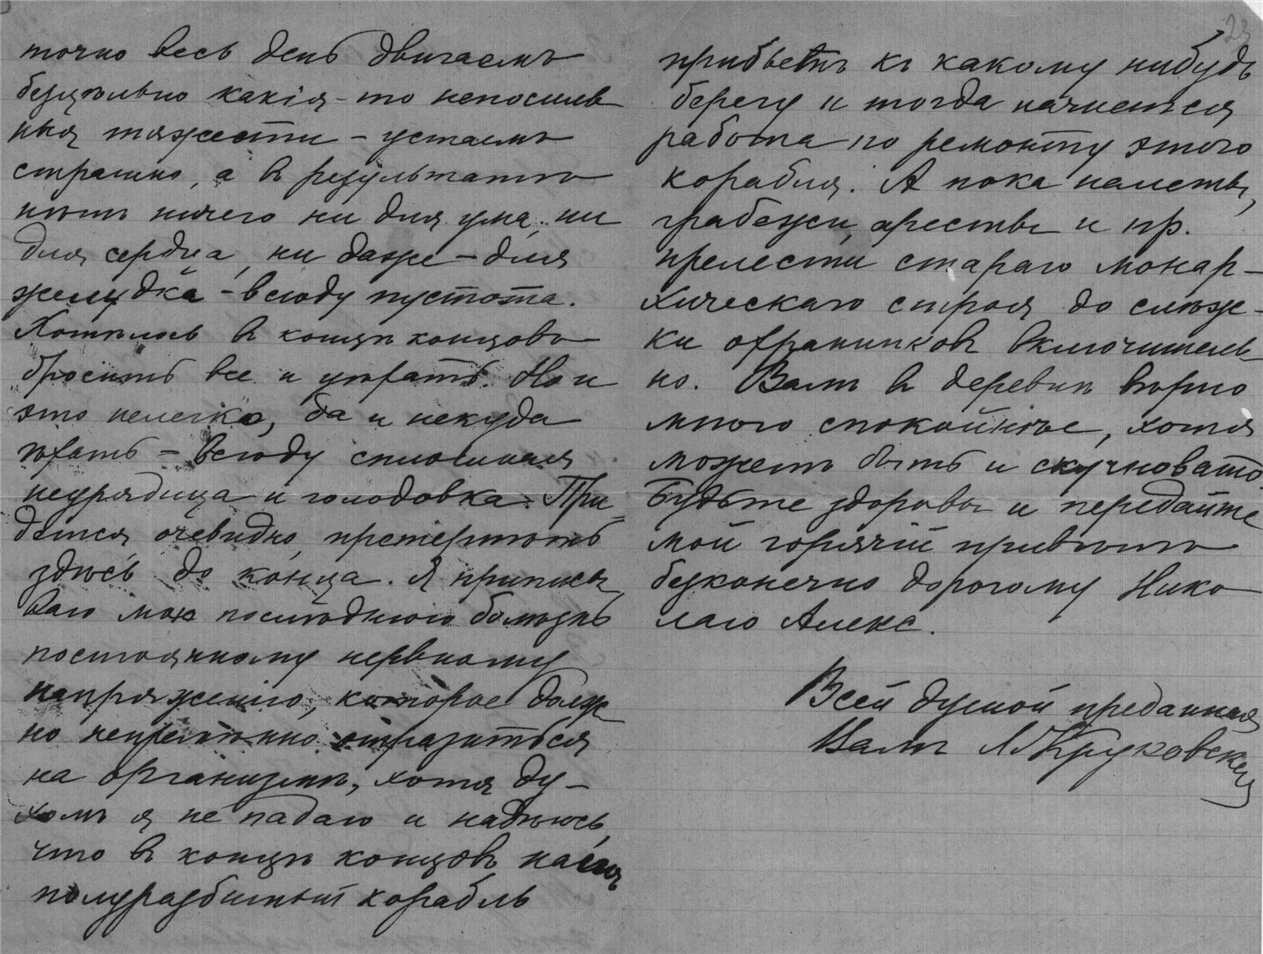 точно весь день двигаемъ
безцѣльно какія-то непосиль
ныя тяжести – устаемъ
страшно, а въ результатѣ
нѣтъ ничего ни для ума, ни
для сердца, ни даже – для
желудка – всюду пустота.
Хотѣлось въ концѣ концовъ
бросить все и уѣхать. Но и
это нелегко, да и некуда
ѣхать – всюду сплошная
неурядица и голодовка. При-
дется очевидно, претерпѣть
здѣсь до конца. Я приписы
ваю мою послѣднюю болѣзнь
постоянному нервному
напряженію, которое долж
но непремѣнно отразиться
на организмѣ, хотя ду-
хомъ я не падаю и надѣюсь,
что въ концѣ концовъ нашъ
полуразбитый корабль
23
прибьетъ къ какому нибудь
берегу и тогда начнется
работа по ремонту этого
корабля. А пока налеты,
грабежи, аресты и пр.
прелести стараго монар-
хическаго строя до слѣж-
ки охранниковъ включитель
но. Вамъ въ деревнѣ вѣрно
много спокойнѣе, хотя
можетъ быть и скучновато.
Будьте здоровы и передайте
мой горячій привѣтъ
безконечно дорогому Нико
лаю Алекс.
Всей душой преданная
Вамъ Круковская